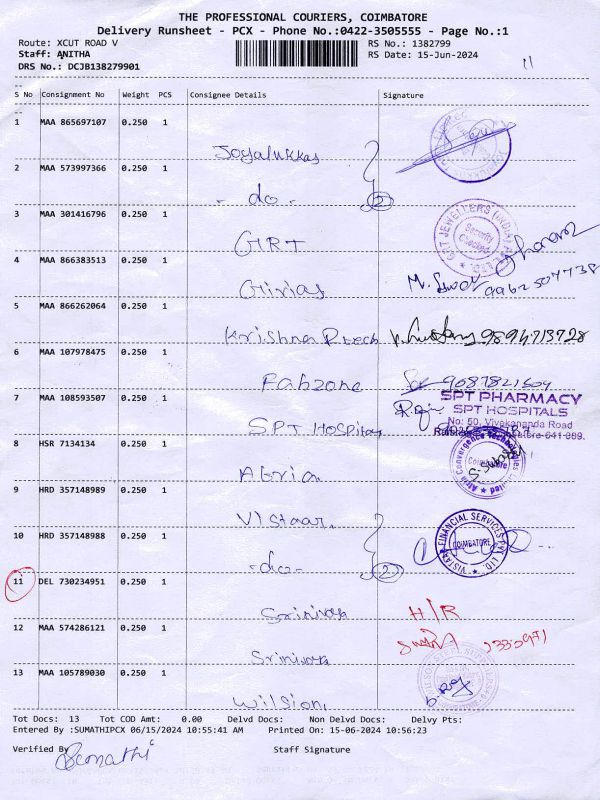 THE PROFESSIONAL COURIERS, COIMBATORE
Delivery Runsheet - PCX - Phone No.:0422-3505555 - Page No.:1
Route: XCUT ROAD V RS No.: 1382799
Staff: ANITHA RS Date: 15-Jun-2024
DRS No.: DCJB138279901 11
S No Consignment No Weight PCS Consignee Details Signature
1 MAA 865697107 0.250 1
Joyalukkas
2 MAA 573997366 0.250 1
- do - 2
3 MAA 301416796 0.250 1
GRT
GRT JEWELLERS (INDIA)
Security Checked
4 MAA 866383513 0.250 1
Girias
5 MAA 866262064 0.250 1
Krishna 9894713728
6 MAA 107978475 0.250 1
Fabzone
7 MAA 108593507 0.250 1
SPT Hospital
SPT PHARMACY
SPT HOSPITALS
No: 50, Vivekananda Road
8 HSR 7134134 0.250 1
Atria
Atria Convergence Technologies Limited
9 HRD 357148989 0.250 1
Vistaar
10 HRD 357148988 0.250 1
- do - 2
VISTAAR FINANCIAL SERVICES PVT. LTD.
COIMBATORE
11 DEL 730234951 0.250 1
Srinivasa
12 MAA 574286121 0.250 1
Srinivasa
13 MAA 105789030 0.250 1
Tot Docs: 13 Tot COD Amt: 0.00 Delvd Docs: Non Delvd Docs: Delvy Pts:
Entered By :SUMATHIPCX 06/15/2024 10:55:41 AM Printed On: 15-06-2024 10:56:23
Verified By Staff Signature